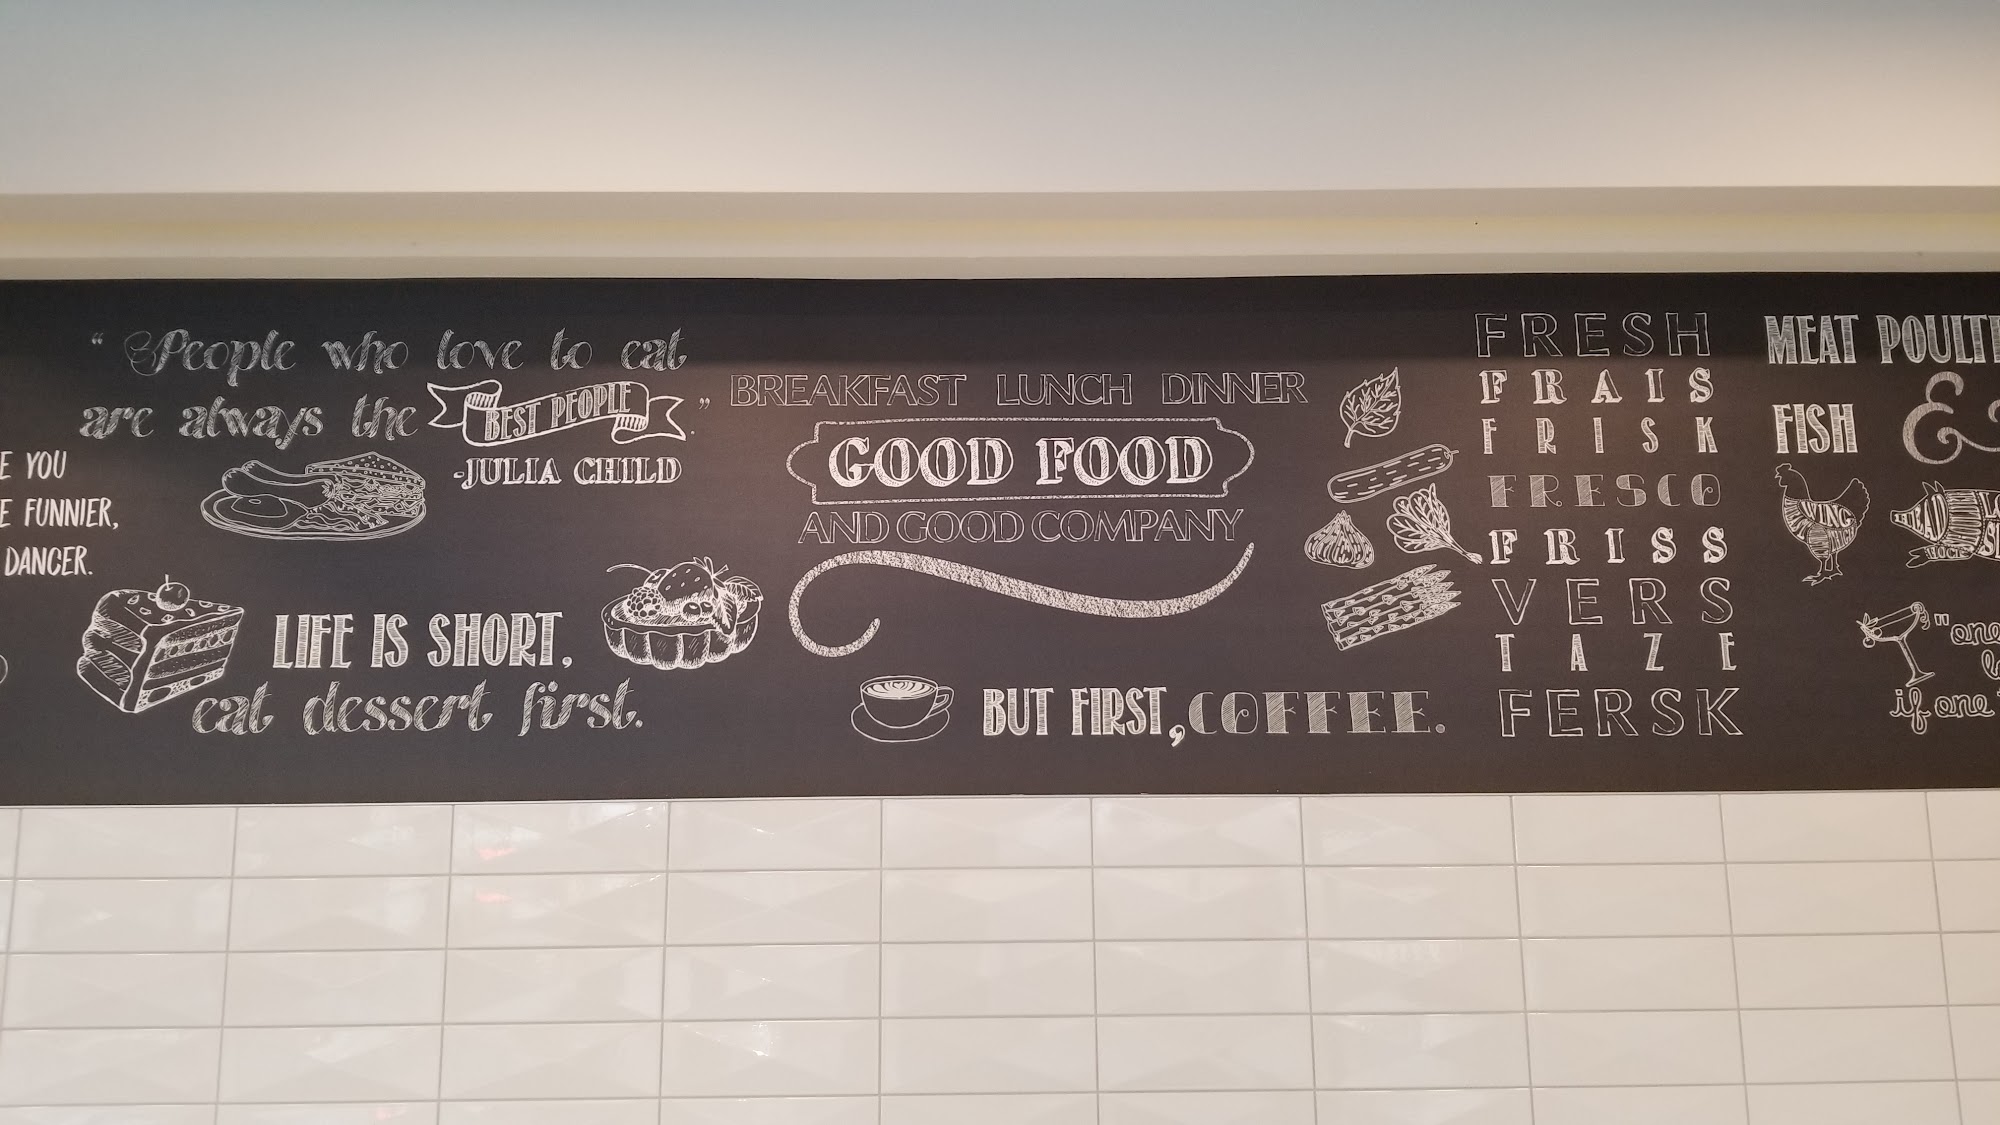 E YOU
E FUNNIER,
DANCER.
“People who love to eat
are always the BEST PEOPLE.”
-JULIA CHILD
LIFE IS SHORT,
eat dessert first.
BREAKFAST LUNCH DINNER
GOOD FOOD
AND GOOD COMPANY
BUT FIRST, COFFEE.
FRESH
FRAIS
FRISK
FRESCO
FRISS
VERS
TAZE
FERSK
MEAT POULT
FISH &
WING
HEAD
"one
if one